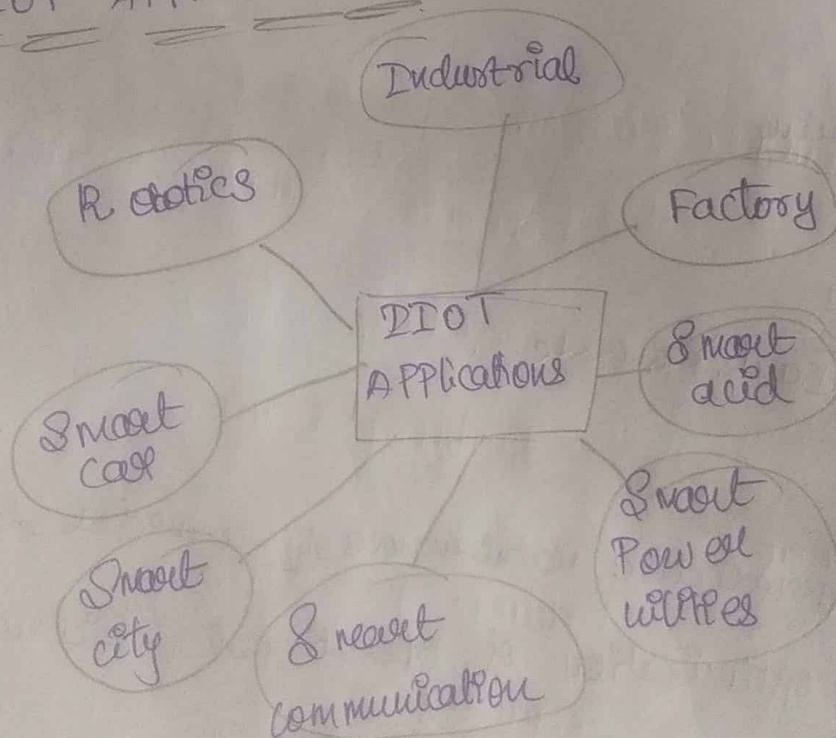 Industrial
Robotics
Factory
IIOT
APPlications
Smart
acid
Smart
car
Smart
Power
utilities
Smart
city
Smart
communication